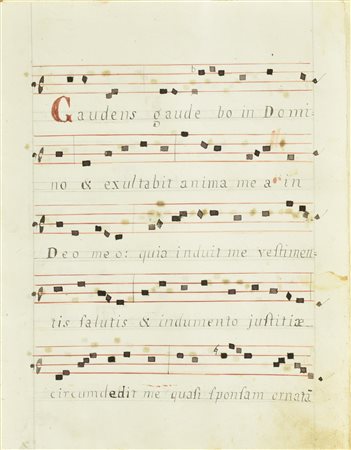 Gaudens gaude bo in Domi-
no & exultabit anima me a in
Deo meo: quia induit me vestimen-
tis salutis & indumento justitiæ
circumdedit me quasi sponsam ornatã